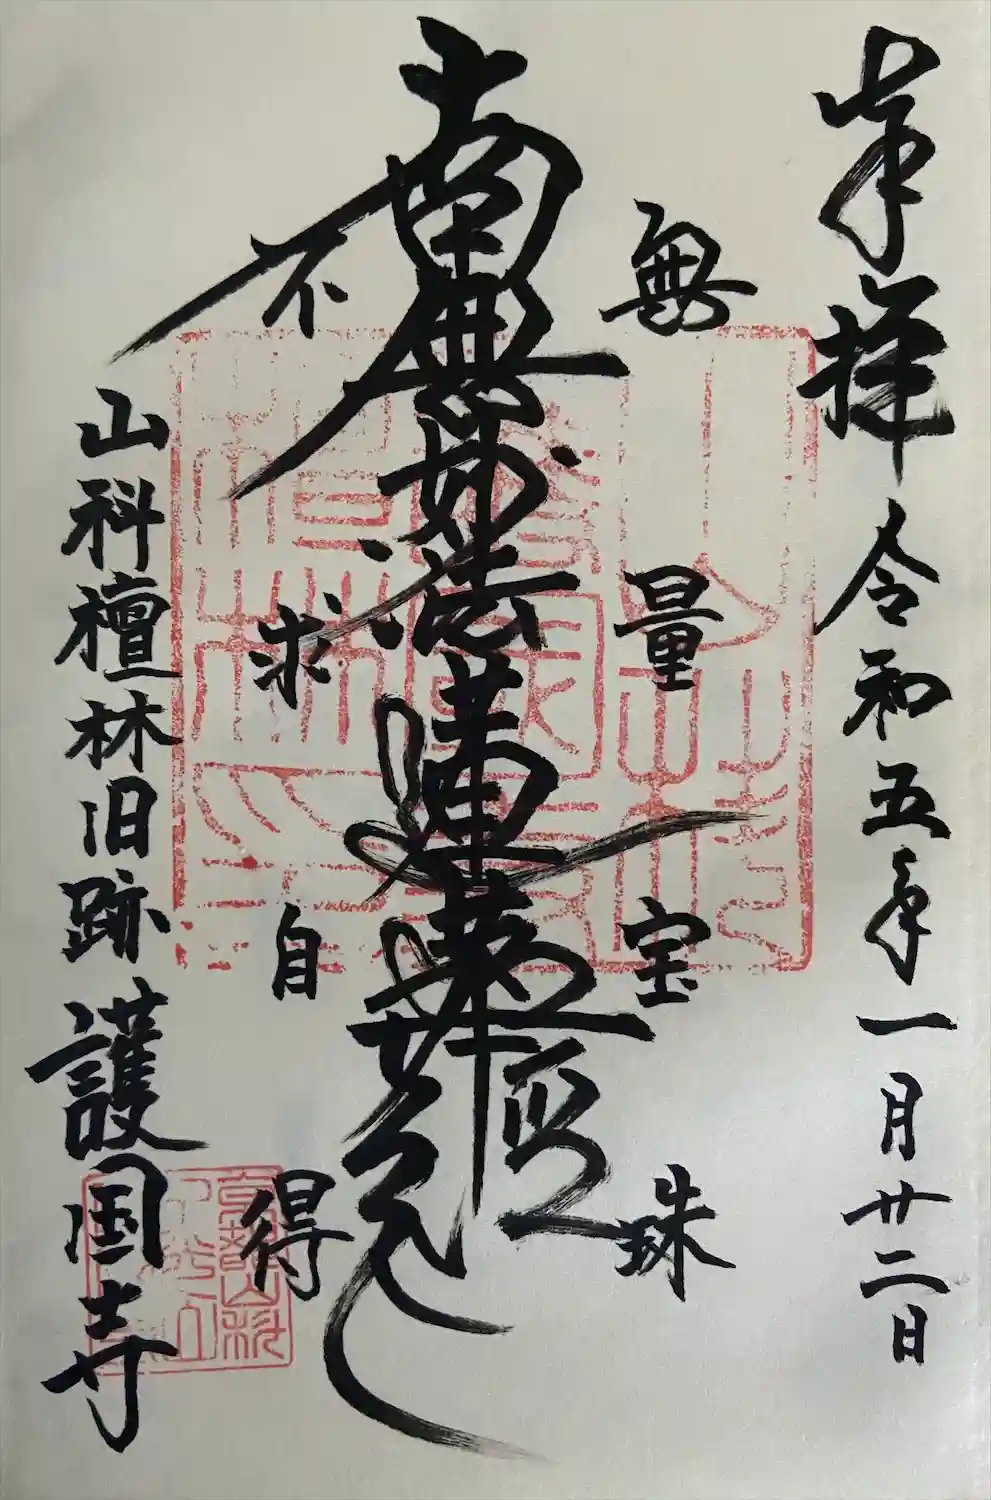 奉拝 令和五年一月廿二日
無量宝珠
南無妙法蓮華経
不求自得
山科檀林旧跡護国寺